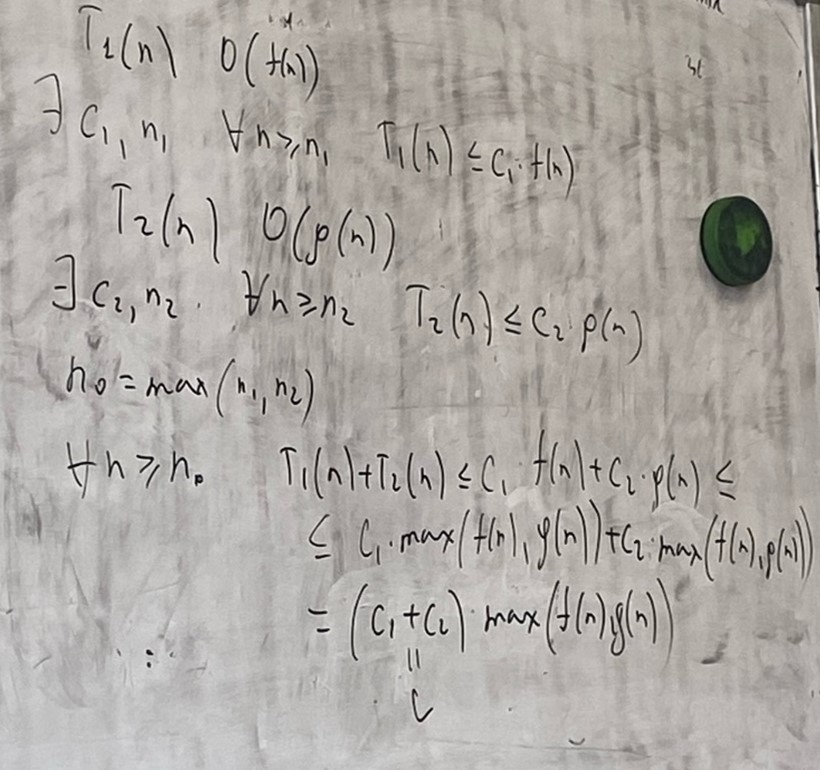 T₁(n) O(f(n))
∃ c₁, n₁ ∀n≥n₁ T₁(n) ≤ c₁·f(n)
T₂(n) O(g(n))
∃ c₂, n₂. ∀n≥n₂ T₂(n) ≤ c₂·g(n)
n₀ = max(n₁, n₂)
∀n≥n₀ T₁(n)+T₂(n) ≤ c₁ f(n)+c₂·g(n) ≤
≤ c₁·max(f(n), g(n))+c₂·max(f(n), g(n))
= (c₁+c₂)·max(f(n), g(n))
=
c